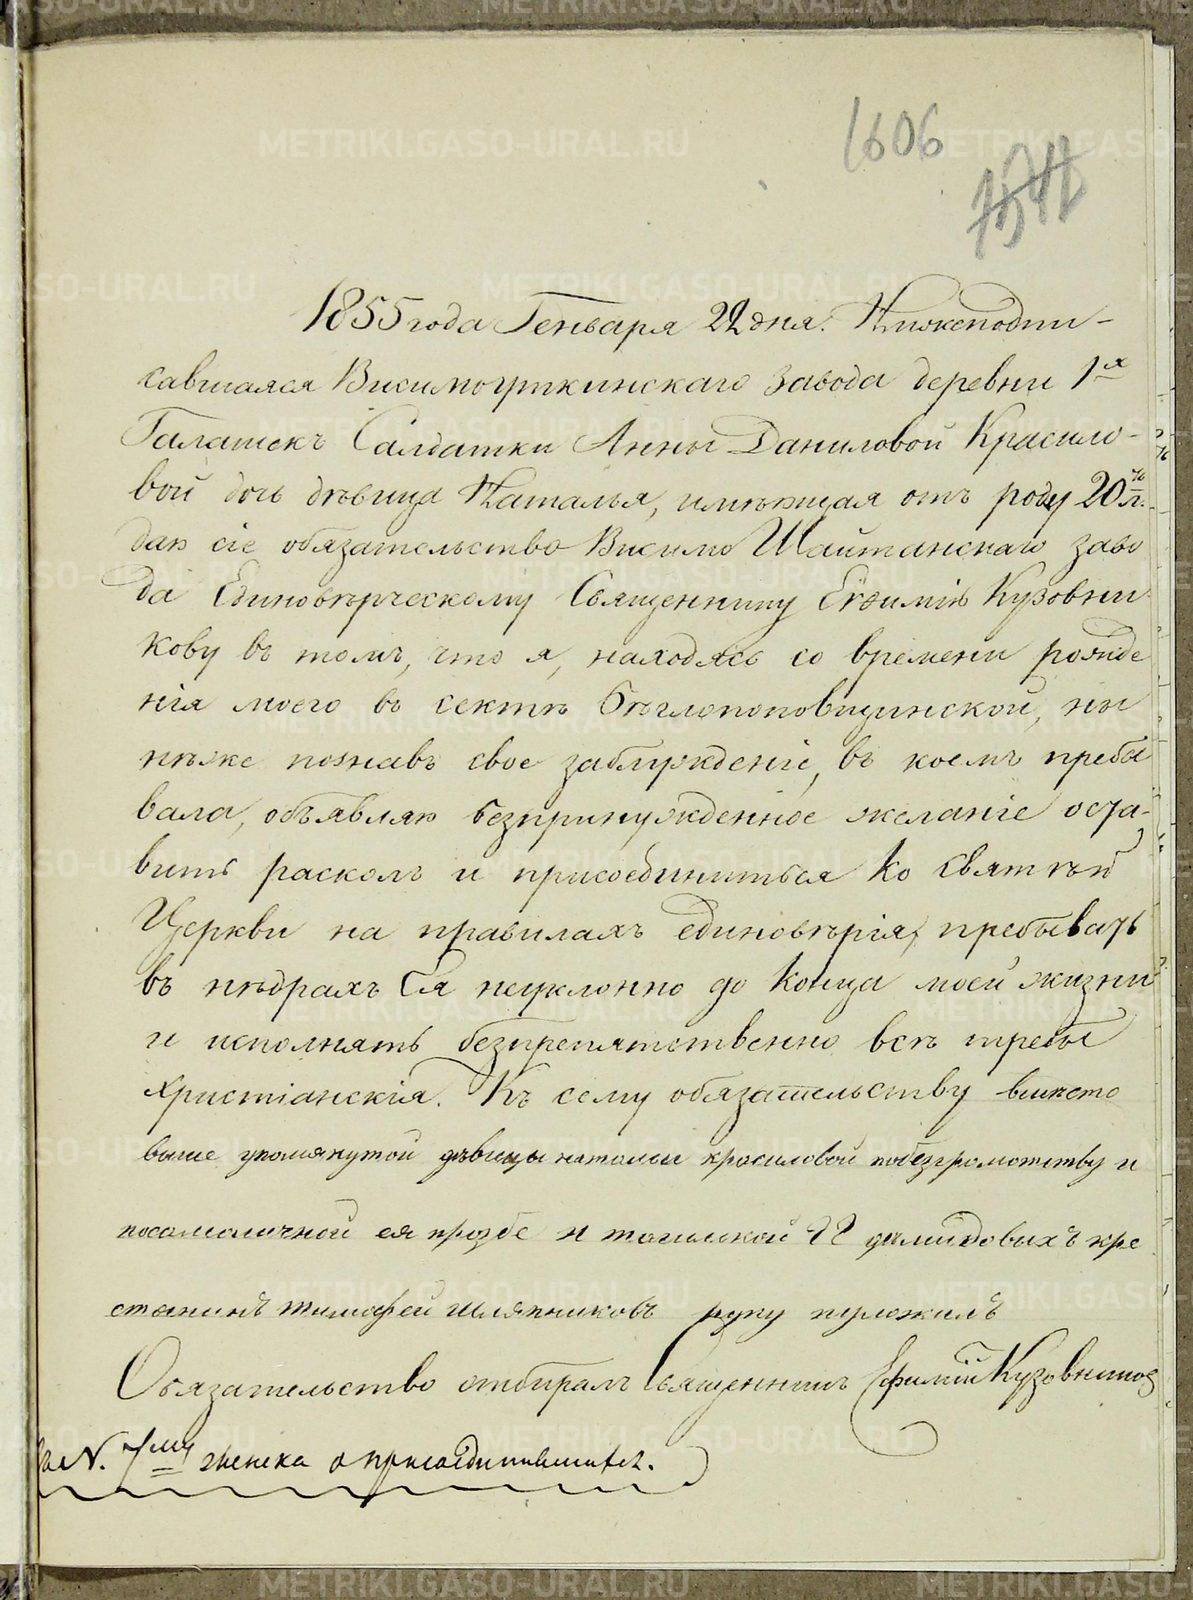 1606
1855 года Генваря 22 дня. Нижеподпи-
савшаяся Висимоуткинскаго завода деревни 1я
Галашекъ Салдатки Анны Даниловой Красило-
вой дочь дѣвица Наталья, имѣющая отъ роду 20 л.
даю сіе обязательство Висимо Шайтанскаго заво
да Единовѣрческому Священнику Евѳимію Кузовни
кову въ томъ, что я, находясь со времени рожде
нія моего въ сектѣ бѣглопоповщинской, ны
нѣже познавъ свое заблужденіе, въ коемъ пребы
вала, объявляю безпринужденное желаніе оста-
вить расколъ и присоединиться ко святѣй
Церкви на правилахъ единовѣрія, пребывать
въ нѣдрахъ Ея неуклонно до конца моей жизни
и исполнять безпрепятственно всѣ требы
христіанскія. Къ сему обязательству вмѣсто
выше упомянутой дѣвицы натальи красиловой побезграмотству и
посамоличной ея прозбе н тагилской Г Г демидовыхъ кре
стянинъ тимофей шляпниковъ руку приложилъ
Обязательство отбиралъ Священникъ Ефимій Кузовников
N. 7му женска о присоединившихся.
METRIKI.GASO-URAL.RU